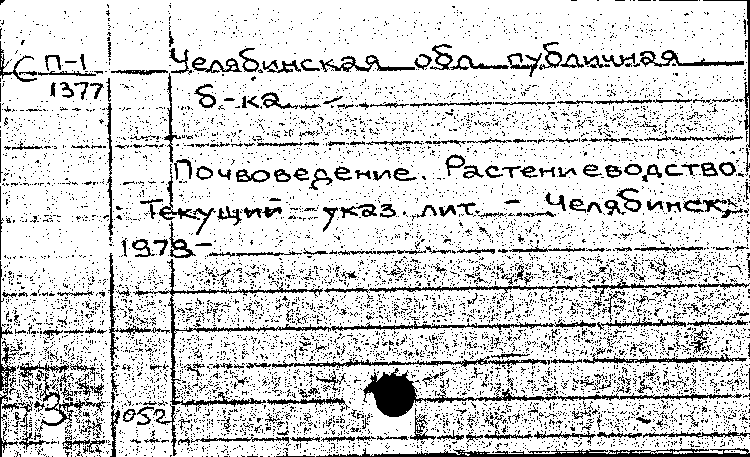 С П-1
1377
Челябинская обл. публичная
б-ка
Почвоведение. Растениеводство.
: Текущий указ. лит. - Челябинск,
1979-
3
1052